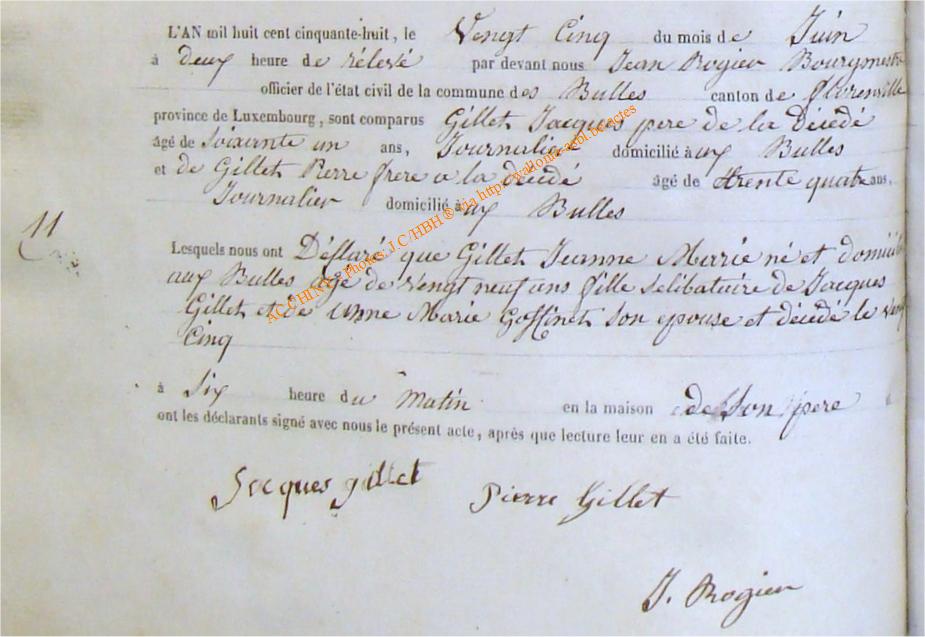 L'AN mil huit cent cinquante-huit, le Vengt Cinq du mois de Juin
à deux heure de rélevé par devant nous Jean Rogier Bourgmestre
officier de l'état civil de la commune des Bulles canton de Florenville
province de Luxembourg, sont comparus Gillet Jacques pere de la décédé
âgé de Soixante un ans, Journalier domicilié à ux Bulles
et de Gillet Pierre frere a la décédé âgé de trente quatre ans,
Journalier domicilié à ux Bulles
11
Lesquels nous ont Déclaré que Gillet Jeanne Marie né et domicilié
aux Bulles agé de vengt neuf ans fille sélibataire de Jacques
Gillet et de Anne Marie Goffinet son epouse et décédé le veng
Cinq
à Six heure du Matin en la maison de Son pere
ont les déclarants signé avec nous le présent acte, après que lecture leur en a été faite.
Jacques gillet
Pierre Gillet
J. Rogier
ACCHINY Photos: J.C/HBH ® via